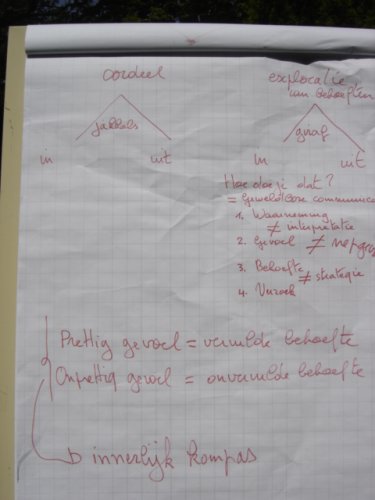 oordeel
exploratie
van behoeften
jakkals
giraf
in
uit
in
uit
Hoe doe je dat?
= Geweldloze communica
1. Waarneming
≠ interpretatie
2. Gevoel ≠ nepgev
3. Behoefte
≠ strategie
4. Verzoek
Prettig gevoel = vervulde behoefte
Onprettig gevoel = onvervulde behoefte
innerlijk kompas